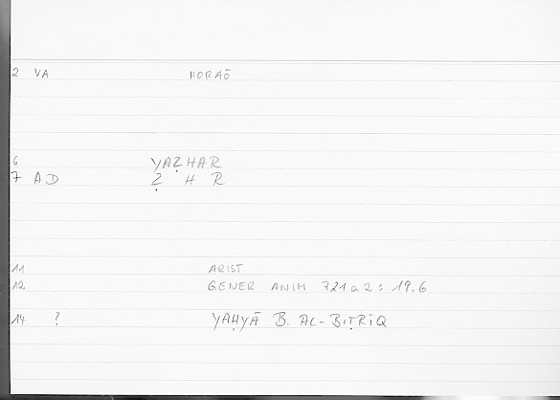 2 VA ὁράω
6 YAẒHAR
7 AD Ẓ H R
11 ARIST
12 GENER ANIM 721a2 : 19.6
14 ? YAḤYĀ B. AL-BIṬRĪQ